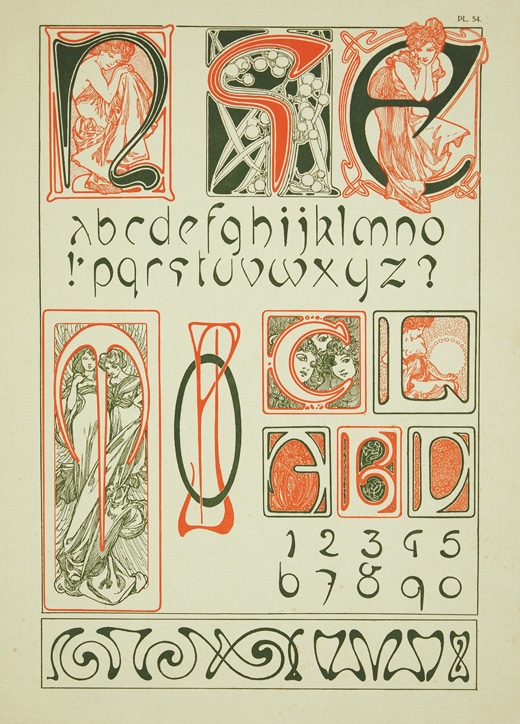 PL. 54.
N S E
abcdefghijklmno
!'pqrstuvwxyz?
M O C
A B D
1 2 3 4 5
6 7 8 9 0